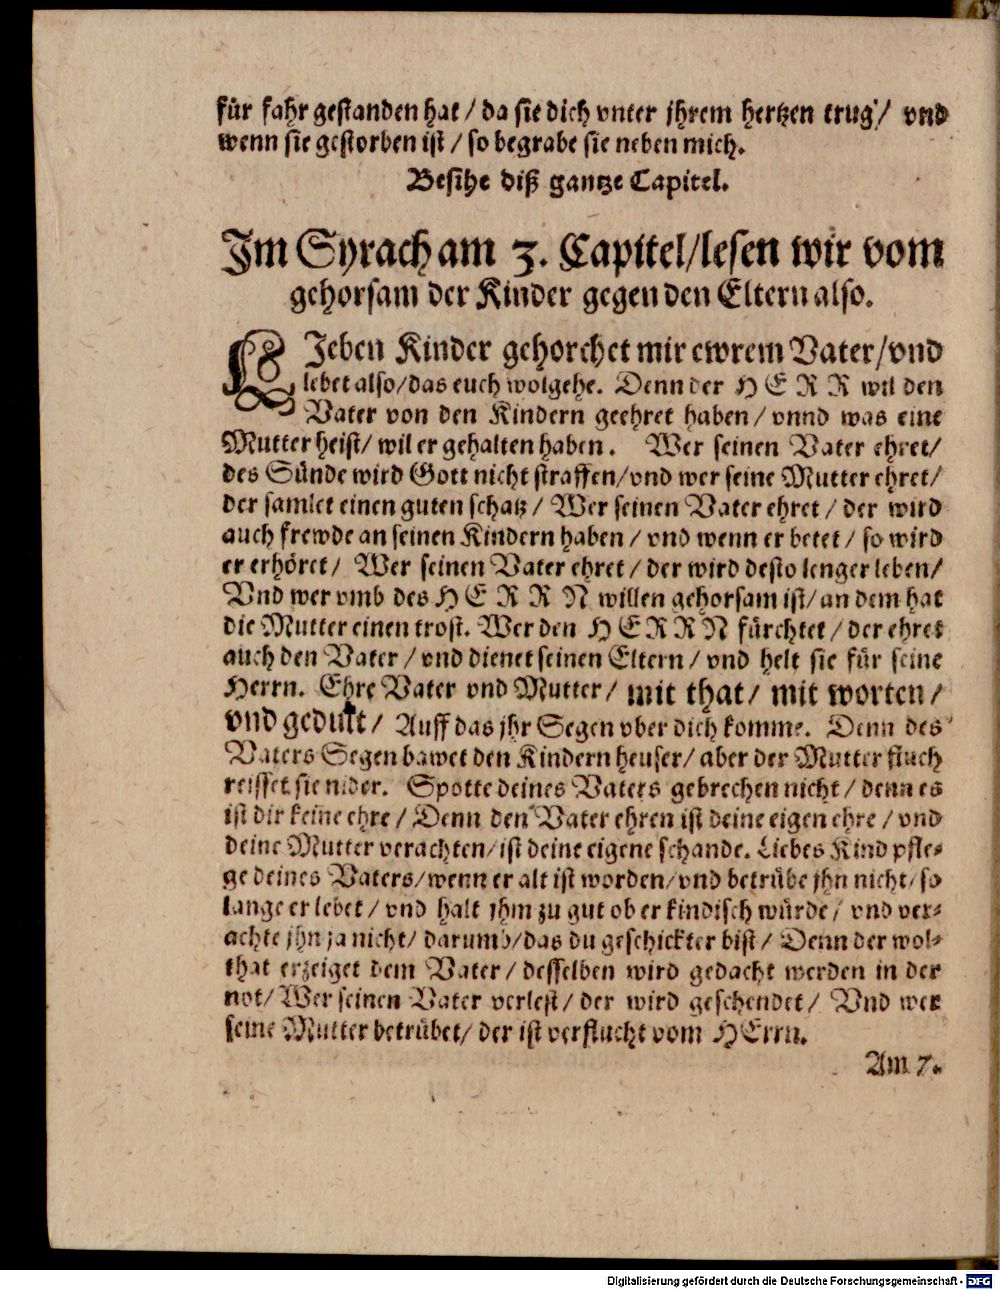 für fahr gestanden hat / da sie dich vnter jhrem hertzen trug / vnd
wenn sie gestorben ist / so begrabe sie neben mich.
Besihe diß gantze Capitel.
Im Syrach am 3. Capitel / lesen wir vom
gehorsam der Kinder gegen den Eltern also.
LJeben Kinder gehorchet mir ewrem Vater / vnd
lebet also / das euch wolgehe. Denn der HERR wil den
Vater von den Kindern geehret haben / vnnd was eine
Mutter heist / wil er gehalten haben. Wer seinen Vater ehret /
des Sünde wird Gott nicht straffen / vnd wer seine Mutter ehret /
der samlet einen guten schatz / Wer seinen Vater ehret / der wird
auch frewde an seinen Kindern haben / vnd wenn er betet / so wird
er erhöret / Wer seinen Vater ehret / der wird desto lenger leben /
Vnd wer vmb des HERRN willen gehorsam ist / an dem hat
die Mutter einen trost. Wer den HERRN fürchtet / der ehret
auch den Vater / vnd dienet seinen Eltern / vnd helt sie für seine
Herrn. Ehre Vater vnd Mutter / mit that / mit worten /
vnd gedult / Auff das jhr Segen vber dich komme. Denn des
Vaters Segen bawet den Kindern heuser / aber der Mutter fluch
reisset sie nider. Spotte deines Vaters gebrechen nicht / denn es
ist dir keine ehre / Denn den Vater ehren ist deine eigen ehre / vnd
deine Mutter verachten / ist deine eigene schande. Liebes Kind pfle-
ge deines Vaters / wenn er alt ist worden / vnd betrübe jhn nicht / so
lange er lebet / vnd halt jhm zu gut ob er kindisch würde / vnd ver-
achte jhn ja nicht / darumb / das du geschickter bist / Denn der wol-
that erzeiget dem Vater / desselben wird gedacht werden in der
not / Wer seinen Vater verlest / der wird geschendet / Vnd wer
seine Mutter betrübet / der ist verflucht vom HErrn.
Am 7.
Digitalisierung gefördert durch die Deutsche Forschungsgemeinschaft - DFG